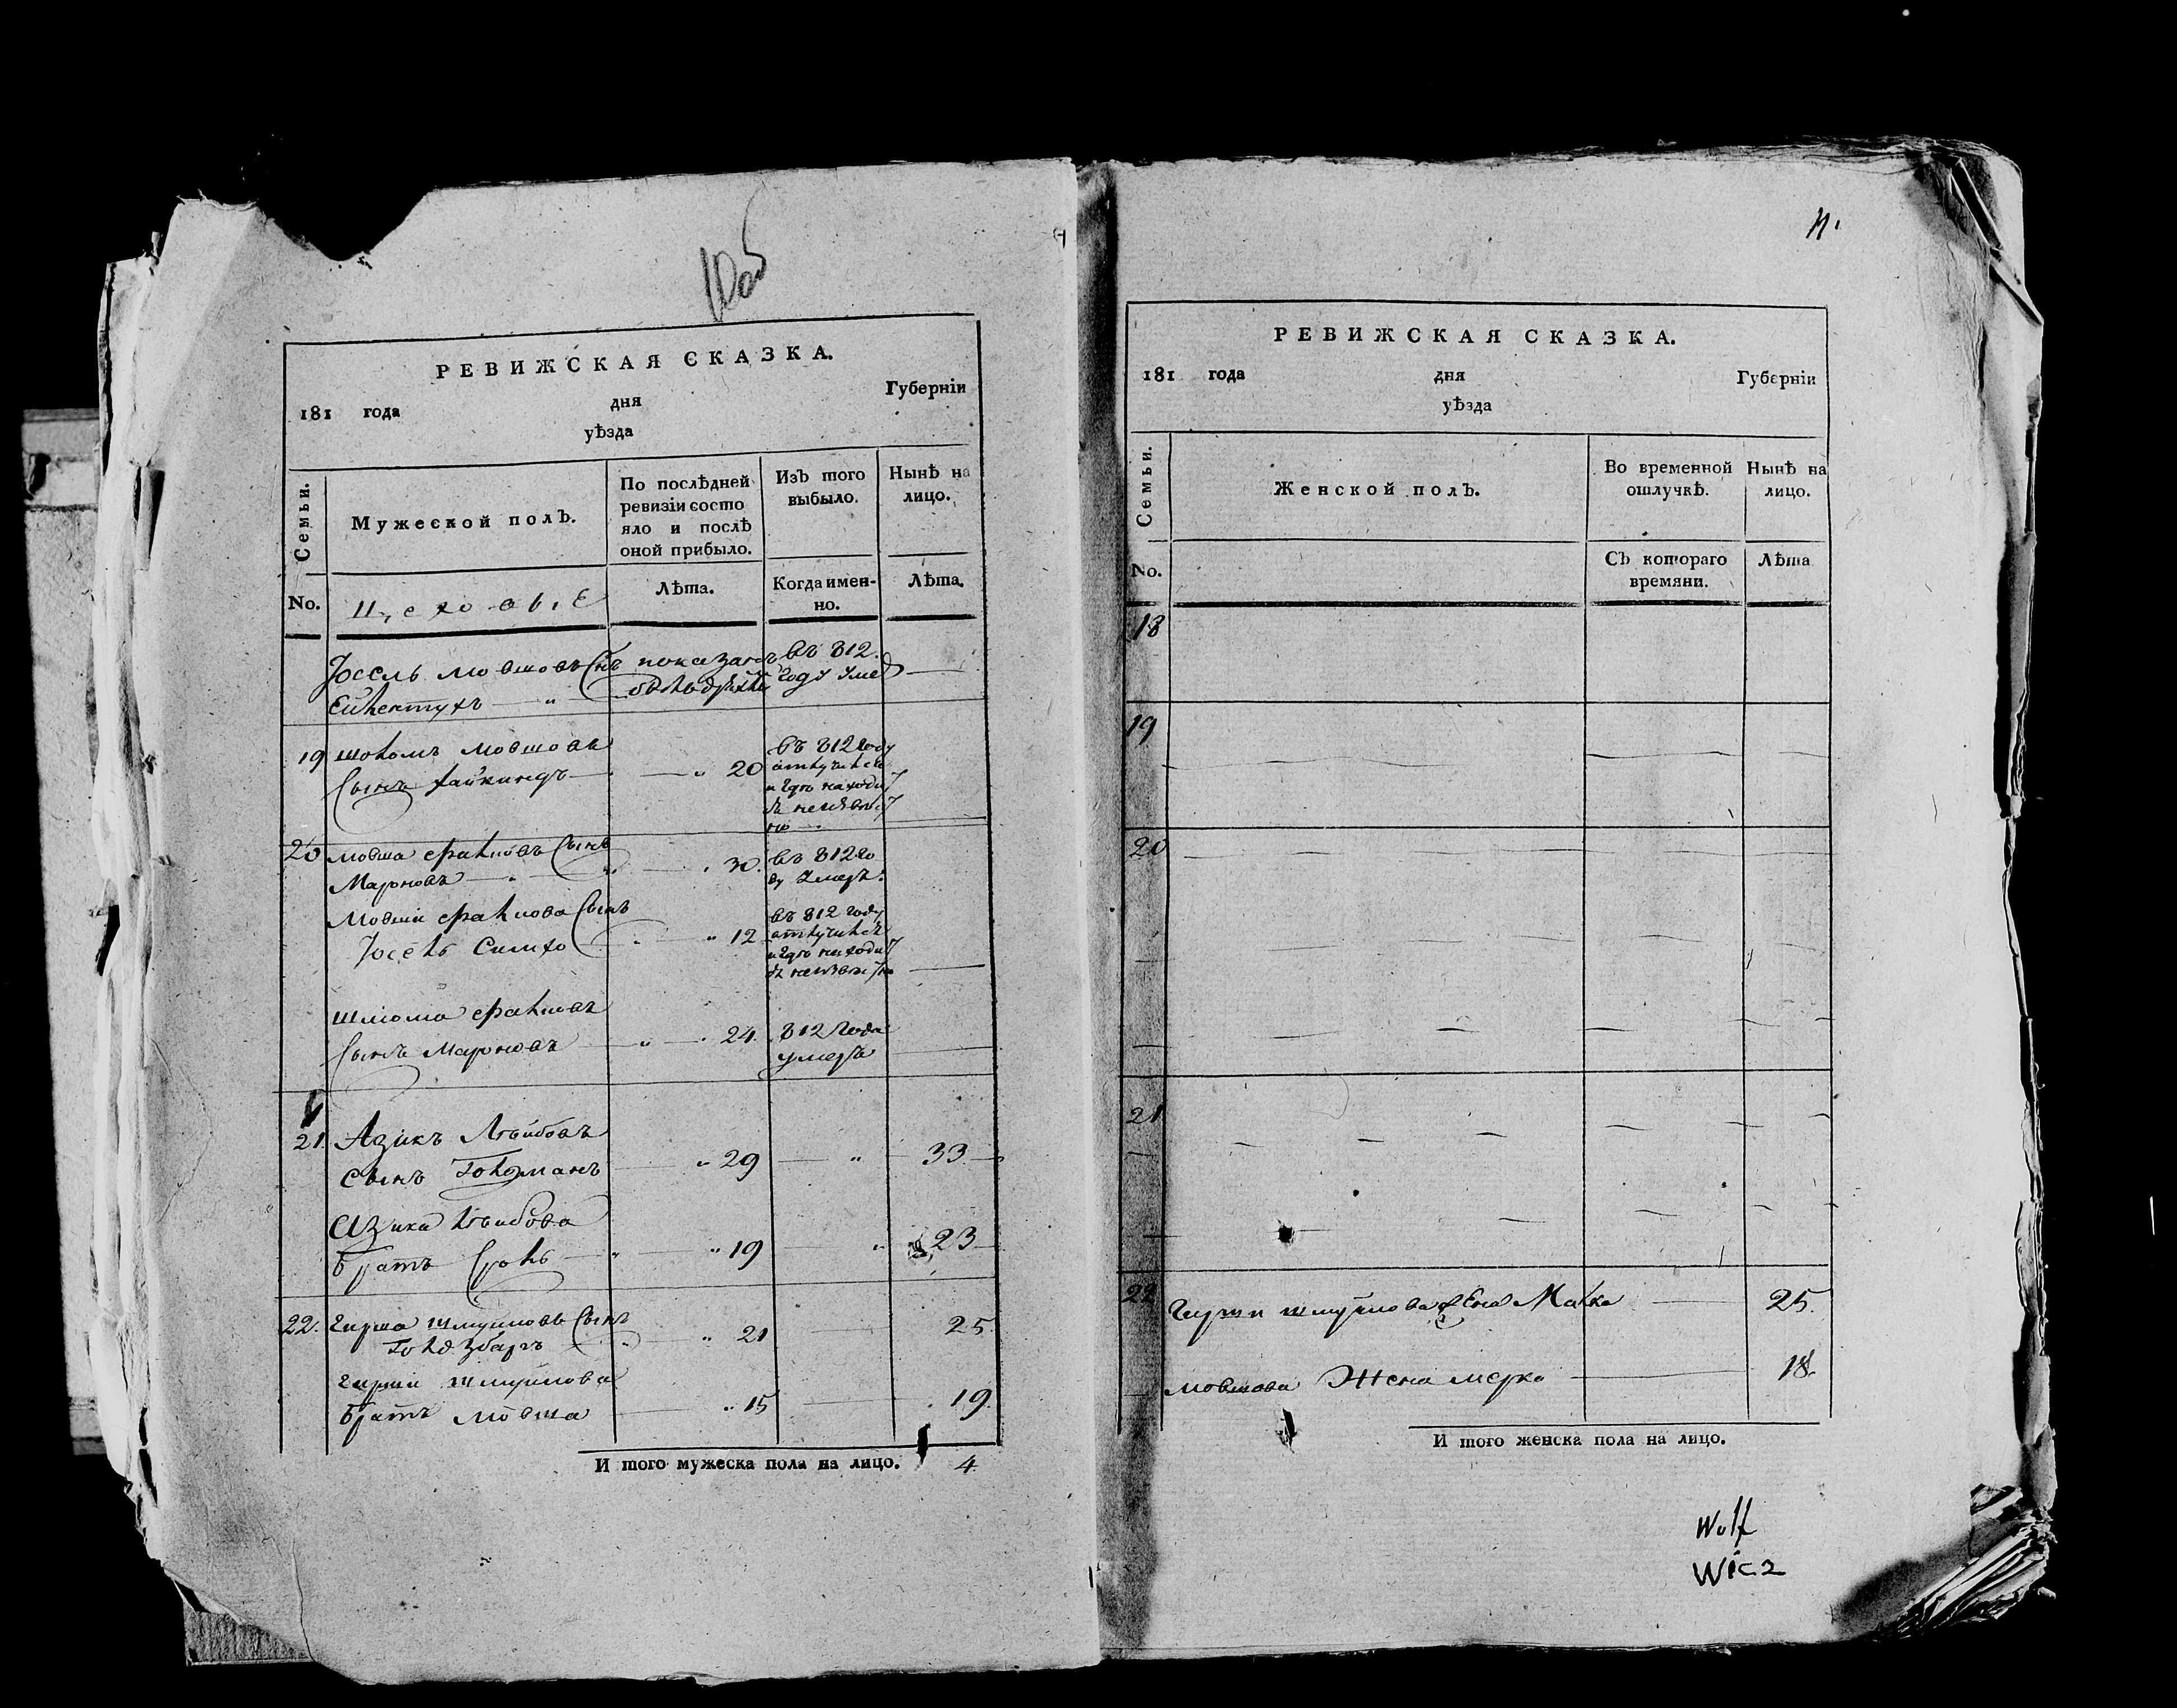 10об
РЕВИЖСКАЯ СКАЗКА.
181 года дня Губерніи
уѣзда
Семьи.
Мужеской полЪ.
По послѣдней
ревизіи состо
яло и послѣ
оной прибыло.
ИзЪ того
выбыло.
Нынѣ на
лицо.
No.
Лѣта.
Когда имен-
но.
Лѣта.
Іосель Мовшовъ Сынъ показанъ въ 812
году умер
19 Шоломъ Мовшовъ
Сынъ Хайкиндъ 20
въ 812 году
отлучился
и где находит
ся неизвест
но
20 Мовша Сролиовъ Сынъ
Марковъ 30.
въ 812 го
ду Умеръ.
Мовши Сролиова Сынъ
Іосель Симхо 12
въ 812 году
отлучился
и где находит
ся неизвестно
Шліома Сролиовъ
Сынъ Марковъ 24.
812 года
умеръ
21. Азикъ Лейбовъ
сынъ Голдманъ 29 33
Азика Лейбова
братъ Сроль 19 23
22. Гирша Шмуйловъ Сынъ
Голдзбаръ 21 25.
Гирши Шмуйлова
братъ Мовша 15 19.
И того мужеска пола на лицо. 4.
11.
РЕВИЖСКАЯ СКАЗКА.
181 года дня Губерніи
уѣзда
Семьи.
Женской полЪ.
Во временной
отлучкѣ.
Нынѣ на
лицо.
No.
СЪ котораго
времяни.
Лѣта
18
19
20
21
22 Гирши Шмуйлова жена Малка 25.
Мовшова Жена Мерка 18.
И того женска пола на лицо.
Wulf
Wicz